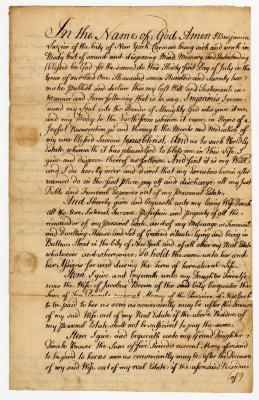 In the Name of God Amen I Benjamin
of the City of New York being sick and weak in
Body but of sound and disposing Mind Memory and Understanding
blessed be God for the same do this Thirty first Day of July in the
Year of our Lord One Thousand seven Hundred and
make Publish and declare this my last Will and Testament in
Manner and Form following that is to say, Imprimis I recom
mend my Soul into the Hands of Almighty God who gave it me,
and my Body to the Earth from whence it came, in Hopes of a
Joyful Resurrection in and through the Merits and Mediation of
my ever blessed Saviour Jesus Christ, And as to such Worldly
Estate wherewith it has pleased God to bless me in this Life, I
give and dispose thereof as follows. And first it is my Will
and I do hereby order and direct that my Executors herein after
named do in the first Place pay off and discharge all my just
Debts and Funeral Expences out of my Personal Estate.
And I hereby give and bequeath unto my loving Wife Sarah
all the Use, Interest, Income, Possession and property of all the
remainder of my Personal Estate, and of my Messuage or Tenement
and Dwelling House and Lot of Ground situate lying and being in
Street in the City of New York and of all other my Real Estate
whatsoever and wheresoever, To hold the same unto her and
her Assigns for and during the Term of her natural Life.
Item I give and bequeath unto my Daughter
now the Wife of Brower of the said City
Sum of Pounds current Money of the Province of New York
to be paid to her as soon as conveniently may be after the Decease
of my said Wife out of my Real Estate if the above Residue of
my Personal Estate shall not be sufficient to pay the same.
Item I give and bequeath unto my Grand Daughter
Brower the Sum of Five Pounds current Money aforesaid
to be paid to her as soon as conveniently may be after the Decease
of my said Wife out of my real Estate if the aforesaid Residue
(of)